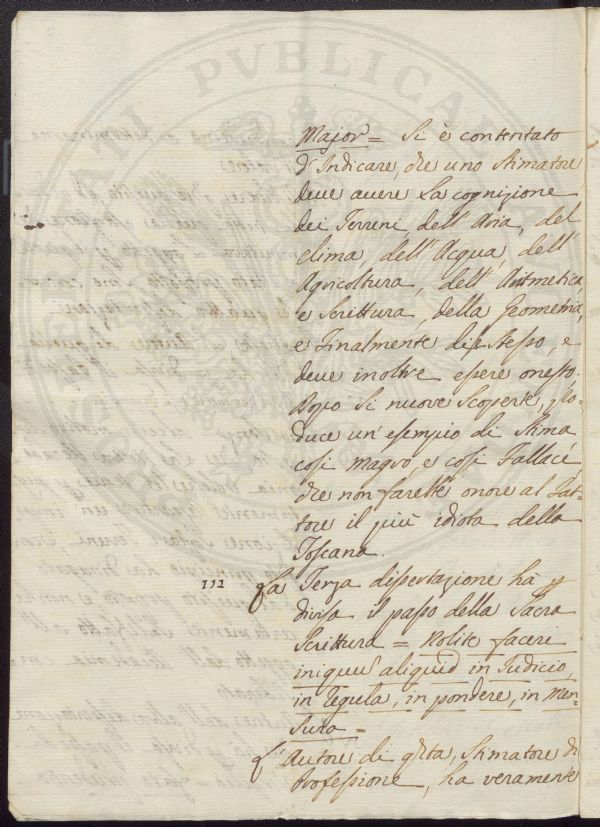 Major = Si è contentato
d'Indicare, che uno Stimatore
deve avere La cognizione
dei Terreni, dell'Aria, del
clima, dell'Acqua, dell'
Agricoltura, dell'Aritmetica,
e Scrittura, della Geometria,
e Finalmente di se stesso, e
deve inoltre essere onesto.
Dopo Si nuove Scoperte, pro-
duce un'esempio di Stima,
così magro, e così Fallace
che non farebbe onore al Fat-
tore il più idiota della
Toscana.
III La Terza dissertazione ha p
divisa il passo della Sacra
Scrittura = Nolite facere
iniquum aliquid in Iudicio,
in Regula, in pondere, in Men-
sura =
L'Autore di questa, Stimatore di
Professione, ha veramente